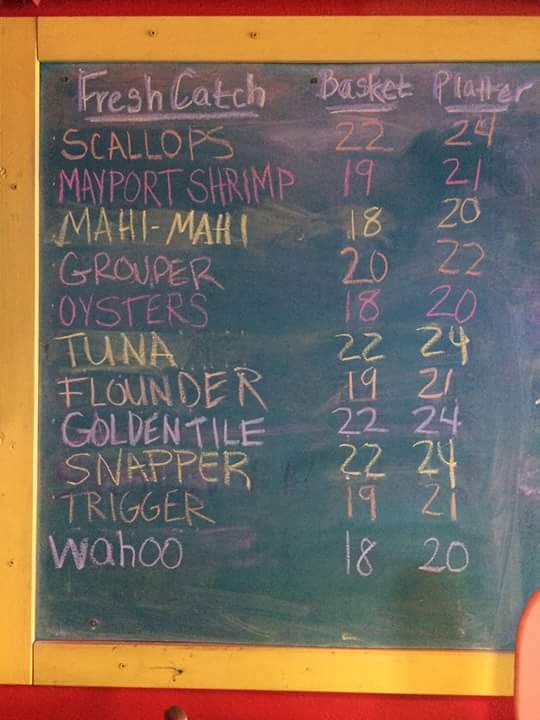 Fresh Catch Basket Platter
SCALLOPS 22 24
MAYPORT SHRIMP 19 21
MAHI-MAHI 18 20
GROUPER 20 22
OYSTERS 18 20
TUNA 22 24
FLOUNDER 19 21
GOLDEN TILE 22 24
SNAPPER 22 24
TRIGGER 19 21
Wahoo 18 20